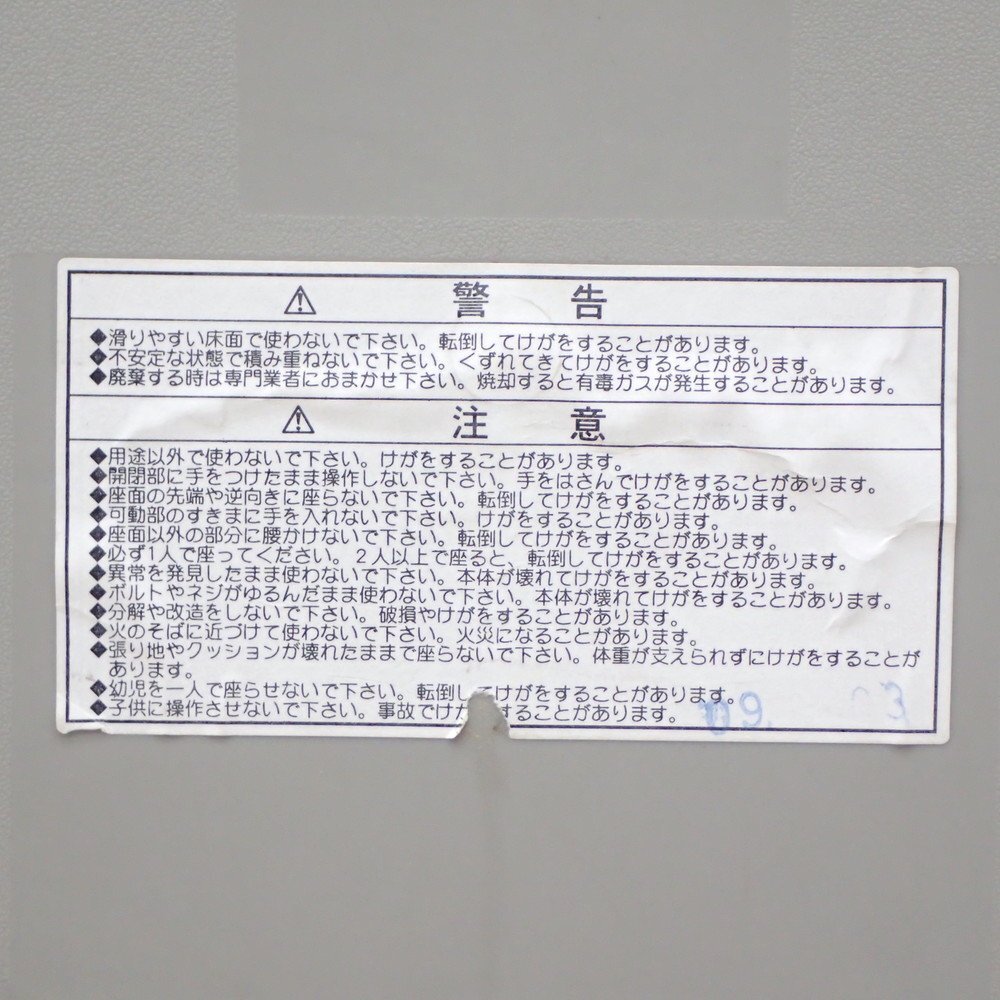 ⚠ 警告
◆滑りやすい床面で使わないで下さい。転倒してけがをすることがあります。
◆不安定な状態で積み重ねないで下さい。くずれてきてけがをすることがあります。
◆廃棄する時は専門業者におまかせ下さい。焼却すると有毒ガスが発生することがあります。
⚠ 注意
◆用途以外で使わないで下さい。けがをすることがあります。
◆開閉部に手をつけたまま操作しないで下さい。手をはさんでけがをすることがあります。
◆座面の先端や逆向きに座らないで下さい。転倒してけがをすることがあります。
◆可動部のすきまに手を入れないで下さい。けがをすることがあります。
◆座面以外の部分に腰かけないで下さい。転倒してけがをすることがあります。
◆必ず1人で座ってください。2人以上で座ると、転倒してけがをすることがあります。
◆異常を発見したまま使わないで下さい。本体が壊れてけがをすることがあります。
◆ボルトやネジがゆるんだまま使わないで下さい。本体が壊れてけがをすることがあります。
◆分解や改造をしないで下さい。破損やけがをすることがあります。
◆火のそばに近づけて使わないで下さい。火災になることがあります。
◆張り地やクッションが壊れたままで座らないで下さい。体重が支えられずにけがをすることが
あります。
◆幼児を一人で座らせないで下さい。転倒してけがをすることがあります。
◆子供に操作させないで下さい。事故でけが することがあります。